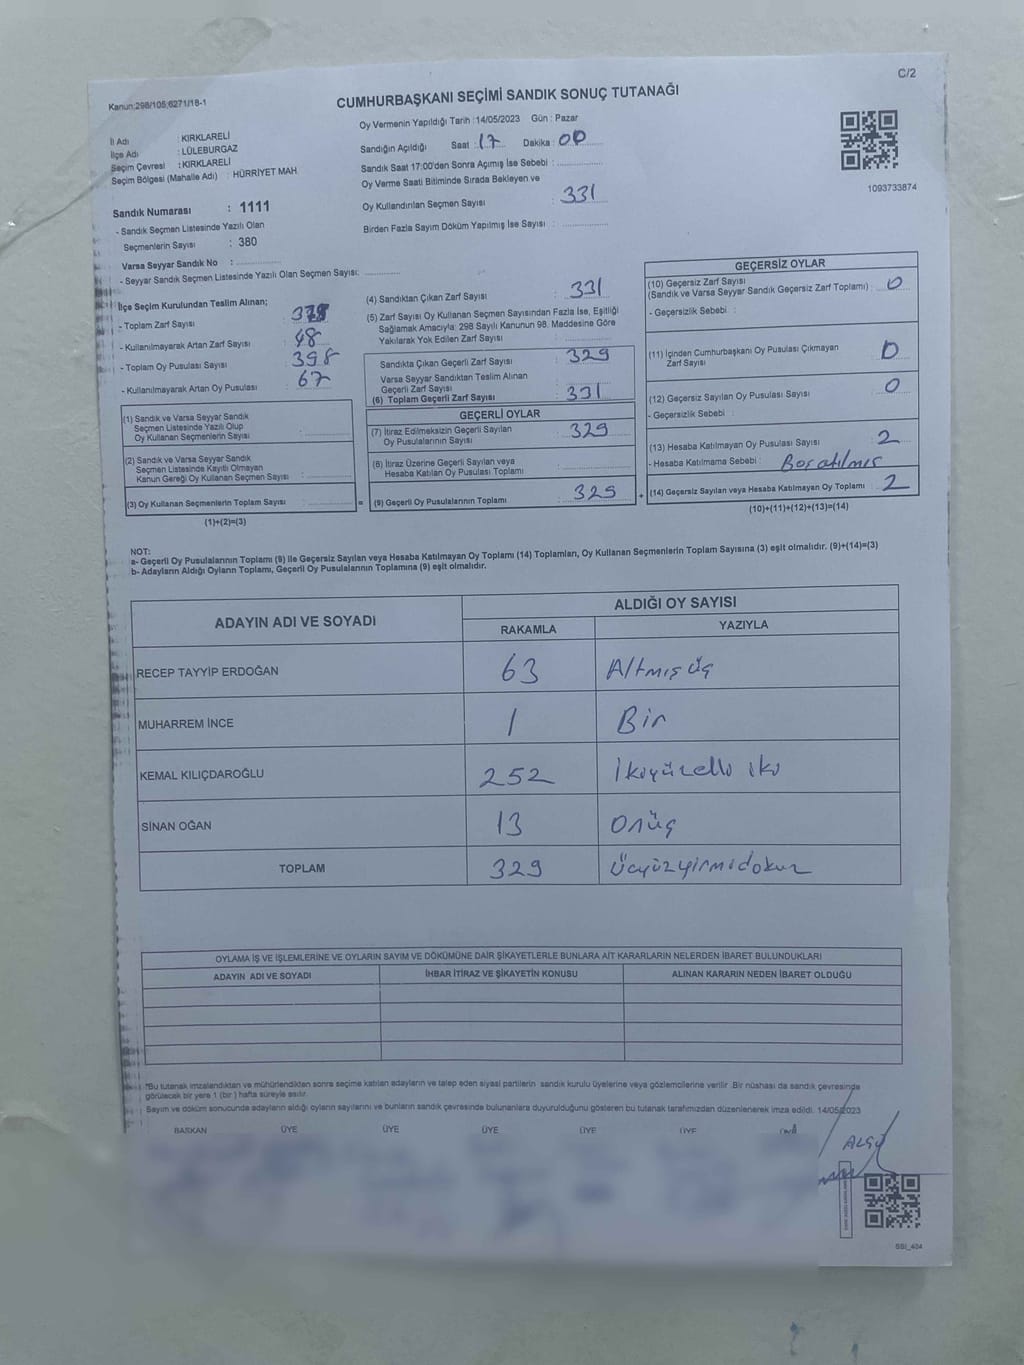 C/2
Kanun:298/105;6271/18-1
CUMHURBAŞKANI SEÇİMİ SANDIK SONUÇ TUTANAĞI
İl Adı : KIRKLARELİ
İlçe Adı : LÜLEBURGAZ
Seçim Çevresi : KIRKLARELİ
Seçim Bölgesi (Mahalle Adı) : HÜRRİYET MAH
Sandık Numarası : 1111
- Sandık Seçmen Listesinde Yazılı Olan
Seçmenlerin Sayısı : 380
Varsa Seyyar Sandık No :
- Seyyar Sandık Seçmen Listesinde Yazılı Olan Seçmen Sayısı:
Oy Vermenin Yapıldığı Tarih :14/05/2023 Gün : Pazar
Sandığın Açıldığı Saat : 17 Dakika : 00
Sandık Saat 17:00'den Sonra Açımış İse Sebebi :
Oy Verme Saati Bitiminde Sırada Bekleyen ve
Oy Kullandırılan Seçmen Sayısı : 331
Birden Fazla Sayım Döküm Yapılmış İse Sayısı :
1093733874
İlçe Seçim Kurulundan Teslim Alınan;
- Toplam Zarf Sayısı :
- Kullanılmayarak Artan Zarf Sayısı : 48
- Toplam Oy Pusulası Sayısı : 398
- Kullanılmayarak Artan Oy Pusulası : 67
(1) Sandık ve Varsa Seyyar Sandık
Seçmen Listesinde Yazılı Olup
Oy Kullanan Seçmenlerin Sayısı :
(2) Sandık ve Varsa Seyyar Sandık
Seçmen Listesinde Kayıtlı Olmayan
Kanun Gereği Oy Kullanan Seçmen Sayısı :
(3) Oy Kullanan Seçmenlerin Toplam Sayısı : =
(1)+(2)=(3)
(4) Sandıktan Çıkan Zarf Sayısı : 331
(5) Zarf Sayısı Oy Kullanan Seçmen Sayısından Fazla İse, Eşitliği
Sağlamak Amacıyla: 298 Sayılı Kanunun 98. Maddesine Göre
Yakılarak Yok Edilen Zarf Sayısı :
Sandıkta Çıkan Geçerli Zarf Sayısı : 329
Varsa Seyyar Sandıktan Teslim Alınan
Geçerli Zarf Sayısı :
(6) Toplam Geçerli Zarf Sayısı : 331
GEÇERLİ OYLAR
(7) İtiraz Edilmeksizin Geçerli Sayılan
Oy Pusulalarının Sayısı : 329
(8) İtiraz Üzerine Geçerli Sayılan veya
Hesaba Katılan Oy Pusulası Toplamı :
(9) Geçerli Oy Pusulalarının Toplamı : 329 +
GEÇERSİZ OYLAR
(10) Geçersiz Zarf Sayısı
(Sandık ve Varsa Seyyar Sandık Geçersiz Zarf Toplamı) : 0
- Geçersizlik Sebebi :
(11) İçinden Cumhurbaşkanı Oy Pusulası Çıkmayan
Zarf Sayısı : 0
(12) Geçersiz Sayılan Oy Pusulası Sayısı : 0
- Geçersizlik Sebebi :
(13) Hesaba Katılmayan Oy Pusulası Sayısı : 2
- Hesaba Katılmama Sebebi : Boş atılmış
(14) Geçersiz Sayılan veya Hesaba Katılmayan Oy Toplamı : 2
(10)+(11)+(12)+(13)=(14)
NOT:
a- Geçerli Oy Pusulalarının Toplamı (9) ile Geçersiz Sayılan veya Hesaba Katılmayan Oy Toplamı (14) Toplamları, Oy Kullanan Seçmenlerin Toplam Sayısına (3) eşit olmalıdır. (9)+(14)=(3)
b- Adayların Aldığı Oyların Toplamı, Geçerli Oy Pusulalarının Toplamına (9) eşit olmalıdır.
ADAYIN ADI VE SOYADI
ALDIĞI OY SAYISI
RAKAMLA YAZIYLA
RECEP TAYYİP ERDOĞAN 63 Altmış üç
MUHARREM İNCE 1 Bir
KEMAL KILIÇDAROĞLU 252 İkiyüzelli iki
SİNAN OĞAN 13 Onüç
TOPLAM 329 Üçyüzyirmidokuz
OYLAMA İŞ VE İŞLEMLERİNE VE OYLARIN SAYIM VE DÖKÜMÜNE DAİR ŞİKAYETLERLE BUNLARA AİT KARARLARIN NELERDEN İBARET BULUNDUKLARI
ADAYIN ADI VE SOYADI İHBAR İTİRAZ VE ŞİKAYETİN KONUSU ALINAN KARARIN NEDEN İBARET OLDUĞU
*Bu tutanak imzalandıktan ve mühürlendikten sonra seçime katılan adayların ve talep eden siyasi partilerin sandık kurulu üyelerine veya gözlemcilerine verilir .Bir nüshası da sandık çevresinde
görülecek bir yere 1 (bir ) hafta süreyle asılır.
Sayım ve döküm sonucunda adayların aldığı oyların sayılarını ve bunların sandık çevresinde bulunanlara duyurulduğunu gösteren bu tutanak tarafımızdan düzenlenerek imza edildi. 14/05/2023
BAŞKAN ÜYE ÜYE ÜYE ÜYE ÜYE
SSI_404